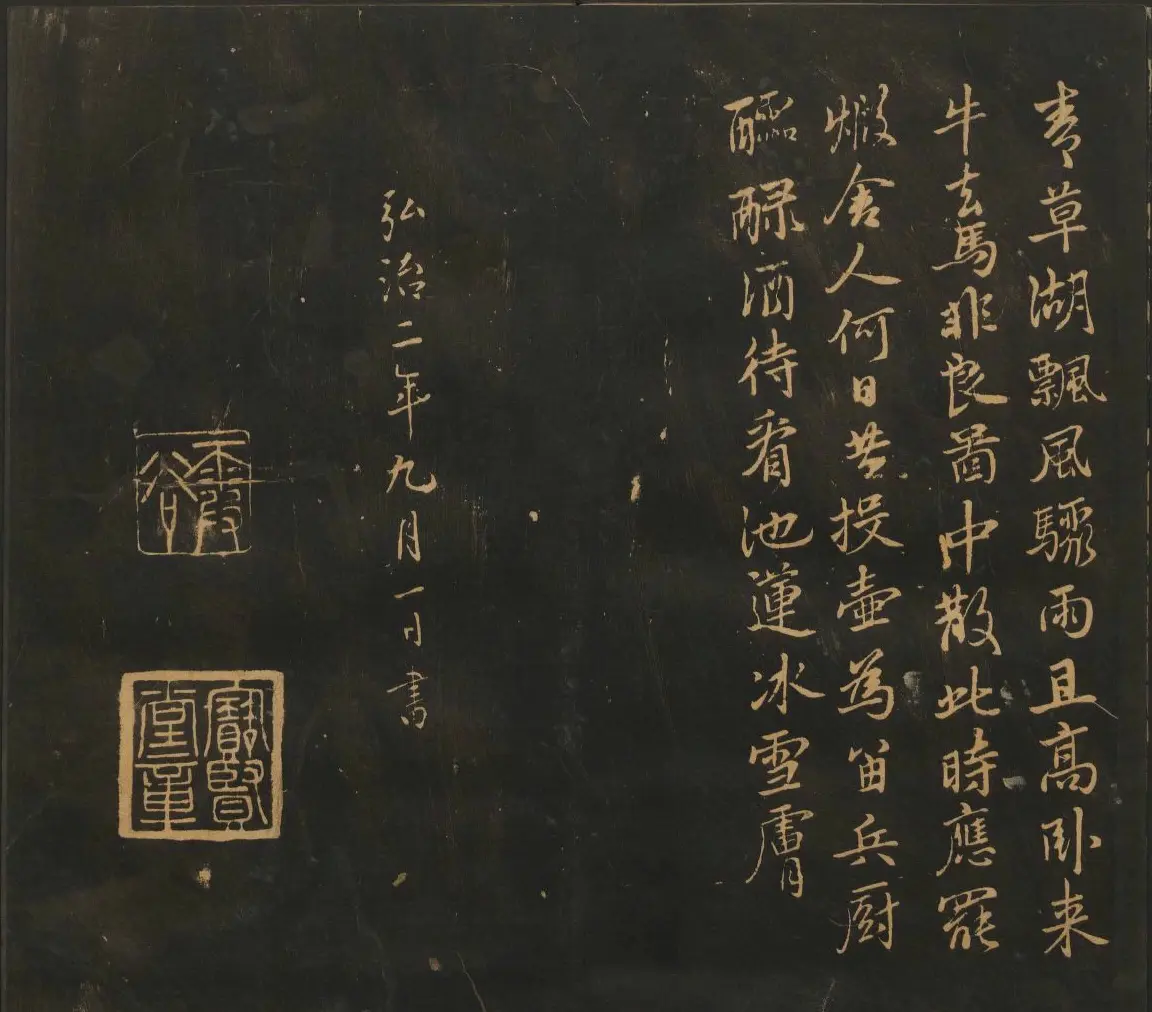 青草湖飄風驟雨且高卧来
牛去馬非良啚中散此時應罷
煅舍人何日共投壺為留兵厨
醽醁酒待看池蓮冰雪膚
弘治二年九月一日書
寶賢堂章